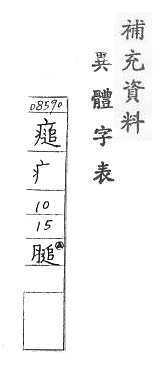 補充資料
異體字表
08590
㿉
疒
10
15
膇